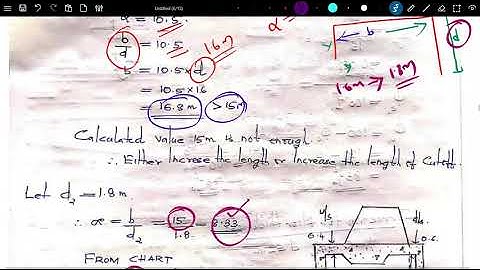 Untitled (6/13)
α = 10.5.
b/d = 10.5
1.6m
b = 10.5 × d
= 10.5×1.6
= 16.8m > 15m
b
d
1.6m → 1.8m
Calculated value 15m is not enough.
∴ Either Increse the length or Increase the length of Cutoff.
Let d₂ = 1.8m.
∴ α = b/d₂ = 15/1.8 = 8.33
u/s
d/s
0.4
0.6
FROM CHART